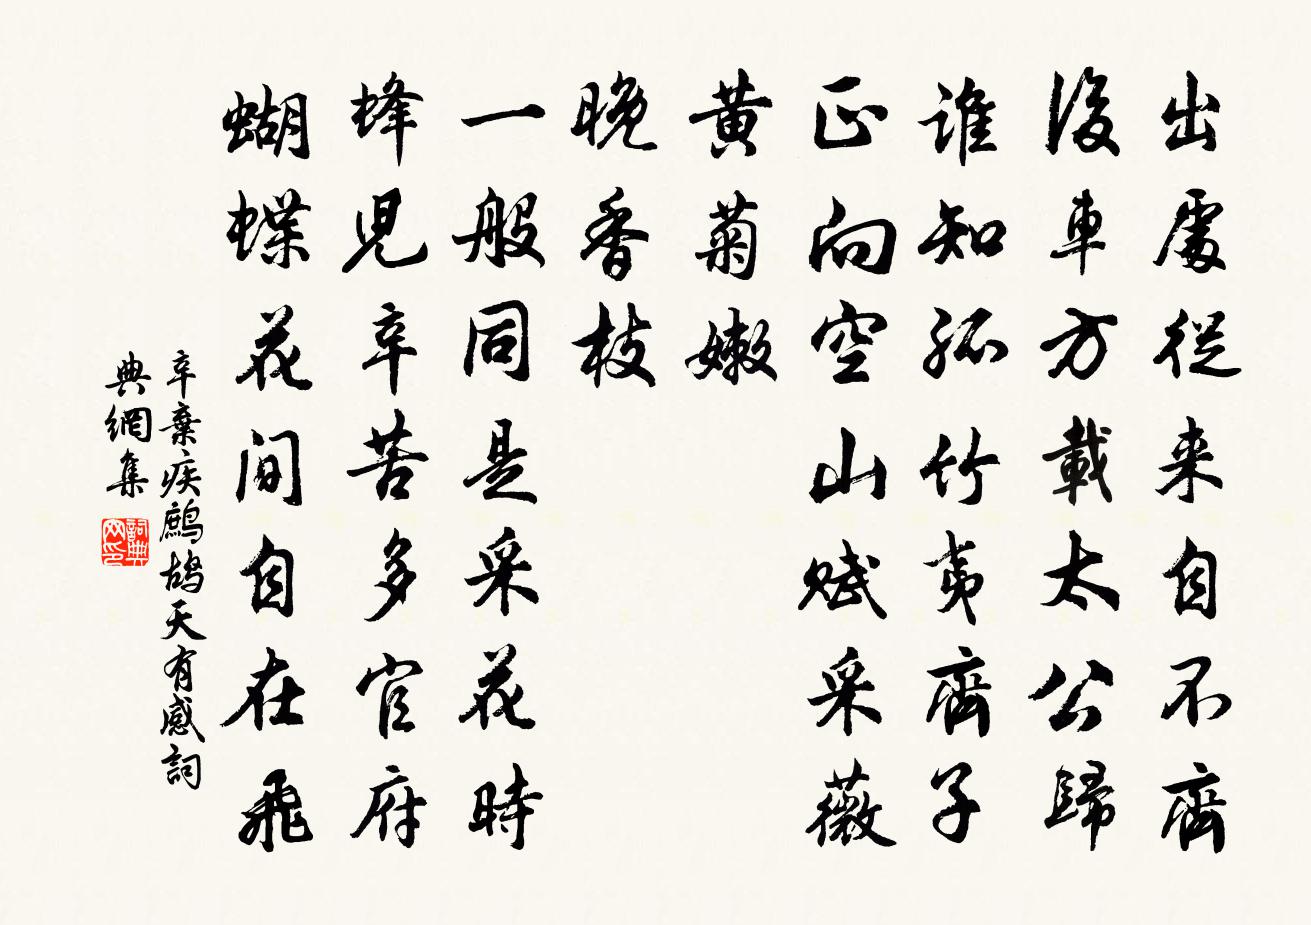 出處從来自不齊
後車方載太公歸
誰知孤竹夷齊子
正向空山賦采薇
黄菊嫩
晚香枝
一般同是采花時
蜂児辛苦多官府
蝴蝶花間自在飛
辛棄疾鷓鴣天有感詞
典網集
詞典
网印